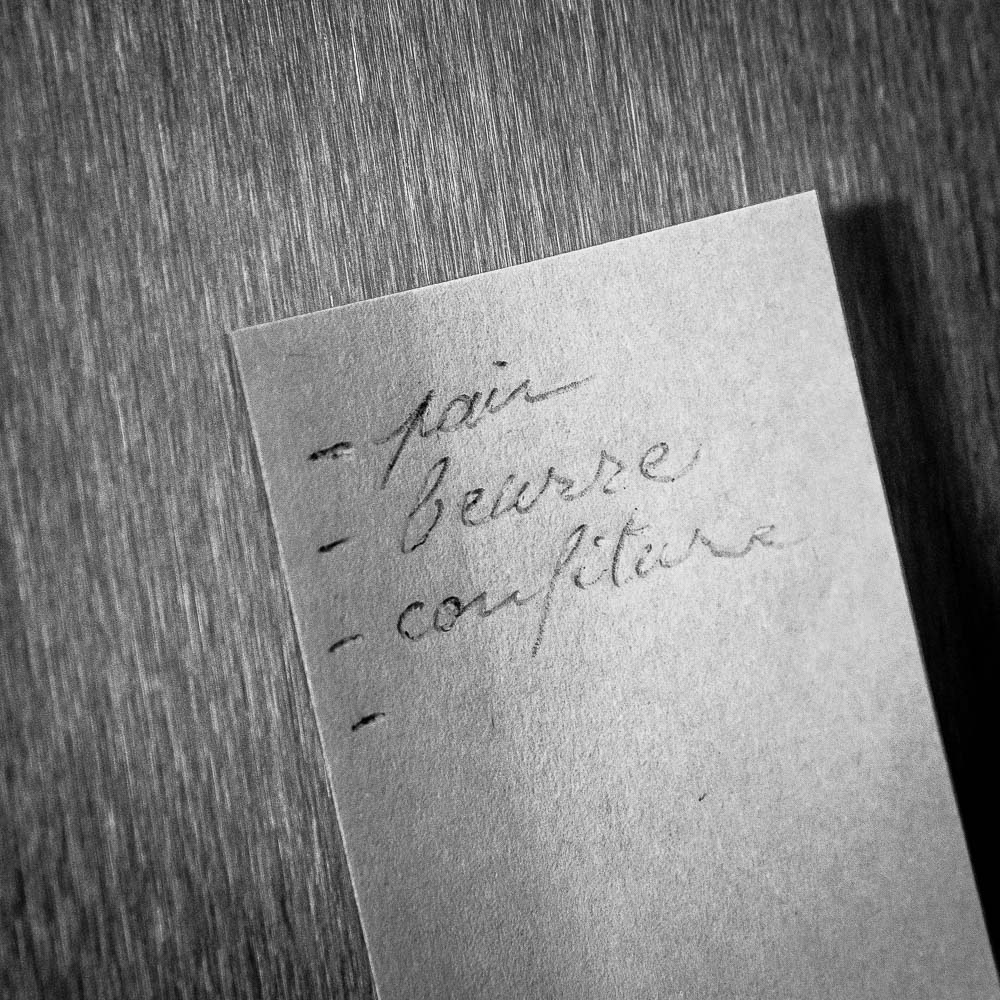 - pain
- beurre
- confiture
-